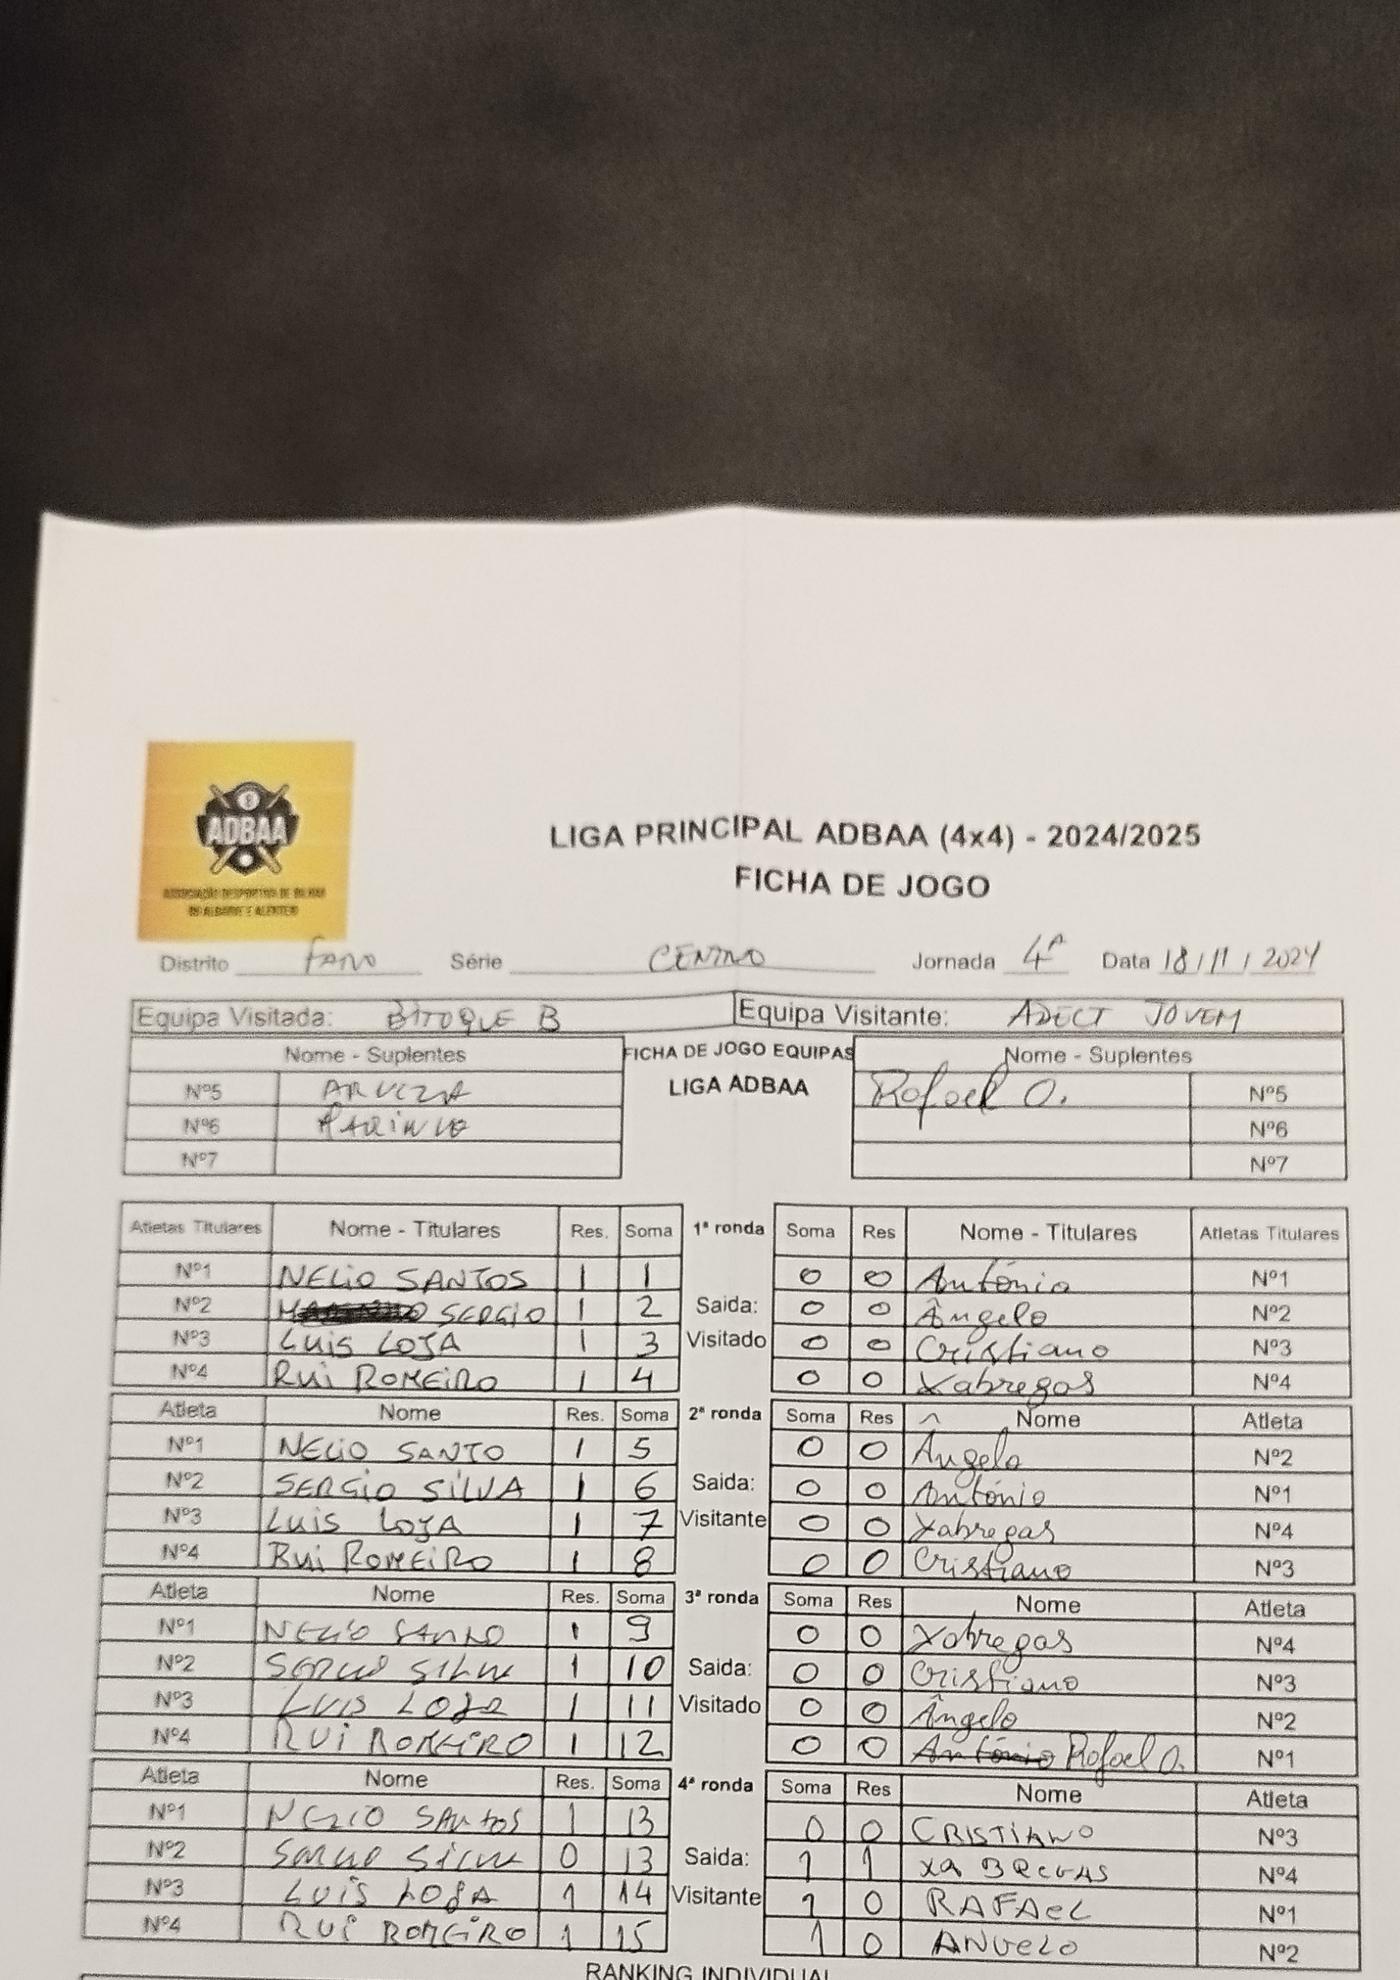 ADBAA
ASSOCIAÇÃO DESPORTIVA DE BILHAR
DO ALGARVE E ALENTEJO
LIGA PRINCIPAL ADBAA (4x4) - 2024/2025
FICHA DE JOGO
Distrito FARO Série CENTRO Jornada 4ª Data 18/11/2024
Equipa Visitada: BITOQUE B Equipa Visitante: ADECT JOVEM
Nome - Suplentes FICHA DE JOGO EQUIPAS Nome - Suplentes
LIGA ADBAA
Nº5 Rafael O. Nº5
Nº6 MARINHO Nº6
Nº7 Nº7
Atletas Titulares Nome - Titulares Res. Soma 1ª ronda Soma Res Nome - Titulares Atletas Titulares
Nº1 NELIO SANTOS 1 1 0 0 António Nº1
Nº2 SERGIO 1 2 Saida: 0 0 Ângelo Nº2
Nº3 LUIS LOJA 1 3 Visitado 0 0 Cristiano Nº3
Nº4 RUI ROMEIRO 1 4 0 0 Xabregas Nº4
Atleta Nome Res. Soma 2ª ronda Soma Res Nome Atleta
Nº1 NELIO SANTO 1 5 0 0 Ângelo Nº2
Nº2 SERGIO SILVA 1 6 Saida: 0 0 António Nº1
Nº3 LUIS LOJA 1 7 Visitante 0 0 Xabregas Nº4
Nº4 RUI ROMEIRO 1 8 0 0 Cristiano Nº3
Atleta Nome Res. Soma 3ª ronda Soma Res Nome Atleta
Nº1 NELIO SANTO 1 9 0 0 Xabregas Nº4
Nº2 SERGIO SILVA 1 10 Saida: 0 0 Cristiano Nº3
Nº3 LUIS LOJA 1 11 Visitado 0 0 Ângelo Nº2
Nº4 RUI ROMEIRO 1 12 0 0 António Rafael O. Nº1
Atleta Nome Res. Soma 4ª ronda Soma Res Nome Atleta
Nº1 NELIO SANTOS 1 13 0 0 CRISTIANO Nº3
Nº2 SERGIO SILVA 0 13 Saida: 1 1 XABREGAS Nº4
Nº3 LUIS LOJA 1 14 Visitante 1 0 RAFAEL Nº1
Nº4 RUI ROMEIRO 1 15 1 0 ANGELO Nº2
RANKING INDIVIDUAL